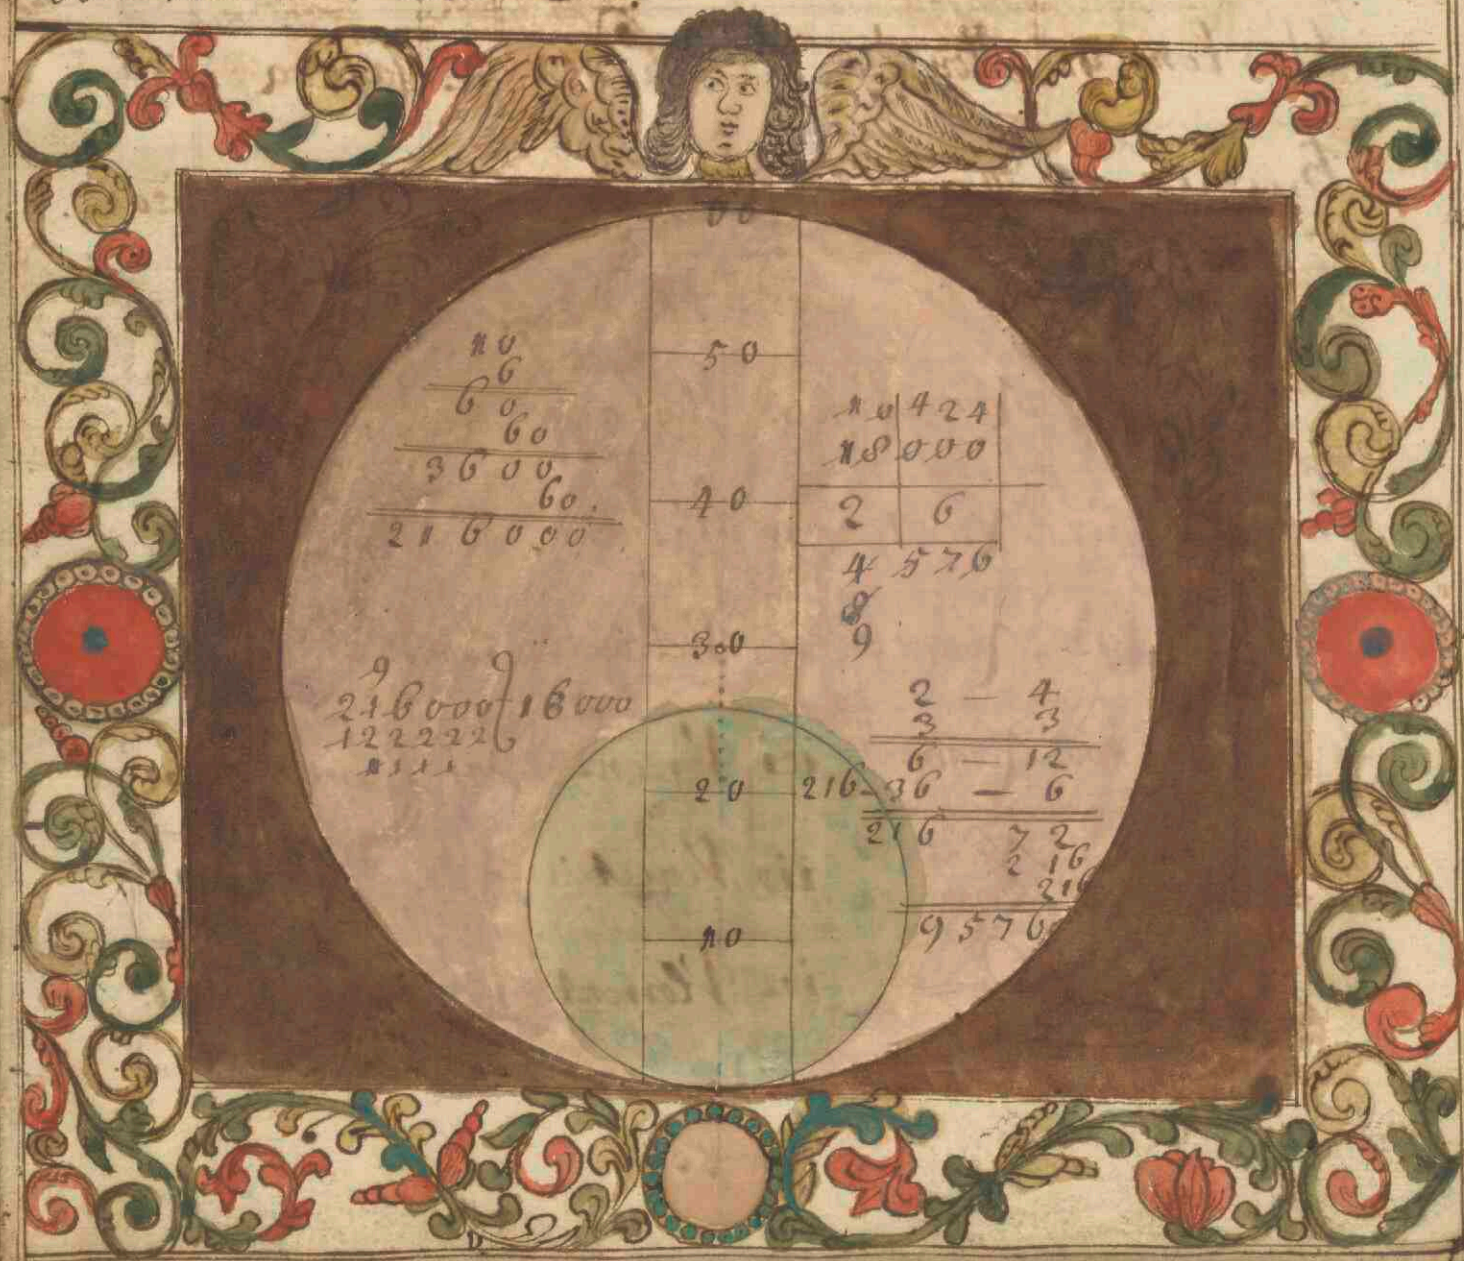 60
50
40
30
20
10
10
6
60
60
3600
60
216000
9 9
216000 18000
122222
1111
10 424
18 000
2 6
4 576
8
9
2 — 4
3 3
6 — 12
216 36 — 6
216 72
2 16
216
9576